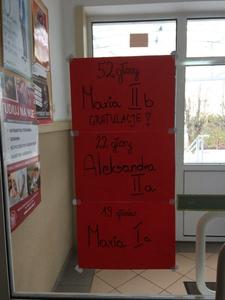 STUDIUJ NA
52 głosy
Maria II b
GRATULACJE!
22 głosy
Aleksandra
II a
19 głosów
Maria I c